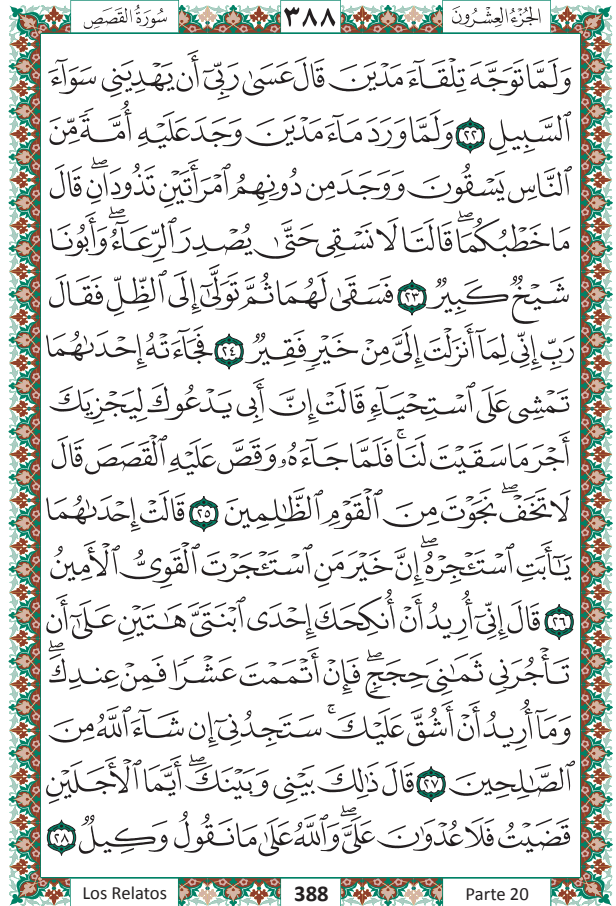 الجُزْءُ العِشْرُونَ ٣٨٨ سُورَةُ القَصَصِ
وَلَمَّا تَوَجَّهَ تِلْقَآءَ مَدْيَنَ قَالَ عَسَىٰ رَبِّىٓ أَن يَهْدِيَنِى سَوَآءَ
ٱلسَّبِيلِ ٢٢ وَلَمَّا وَرَدَ مَآءَ مَدْيَنَ وَجَدَ عَلَيْهِ أُمَّةً مِّنَ
ٱلنَّاسِ يَسْقُونَ وَوَجَدَ مِن دُونِهِمُ ٱمْرَأَتَيْنِ تَذُودَانِۖ قَالَ
مَا خَطْبُكُمَاۖ قَالَتَا لَا نَسْقِى حَتَّىٰ يُصْدِرَ ٱلرِّعَآءُۖ وَأَبُونَا
شَيْخٌ كَبِيرٌ ٢٣ فَسَقَىٰ لَهُمَا ثُمَّ تَوَلَّىٰٓ إِلَى ٱلظِّلِّ فَقَالَ
رَبِّ إِنِّى لِمَآ أَنزَلْتَ إِلَىَّ مِنْ خَيْرٍ فَقِيرٌ ٢٤ فَجَآءَتْهُ إِحْدَىٰهُمَا
تَمْشِى عَلَى ٱسْتِحْيَآءٍ قَالَتْ إِنَّ أَبِى يَدْعُوكَ لِيَجْزِيَكَ
أَجْرَ مَا سَقَيْتَ لَنَاۚ فَلَمَّا جَآءَهُۥ وَقَصَّ عَلَيْهِ ٱلْقَصَصَ قَالَ
لَا تَخَفْۖ نَجَوْتَ مِنَ ٱلْقَوْمِ ٱلظَّٰلِمِينَ ٢٥ قَالَتْ إِحْدَىٰهُمَا
يَٰٓأَبَتِ ٱسْتَـْٔجِرْهُۖ إِنَّ خَيْرَ مَنِ ٱسْتَـْٔجَرْتَ ٱلْقَوِىُّ ٱلْأَمِينُ
٢٦ قَالَ إِنِّىٓ أُرِيدُ أَنْ أُنكِحَكَ إِحْدَى ٱبْنَتَىَّ هَٰتَيْنِ عَلَىٰٓ أَن
تَأْجُرَنِى ثَمَٰنِىَ حِجَجٍۖ فَإِنْ أَتْمَمْتَ عَشْرًا فَمِنْ عِندِكَۖ
وَمَآ أُرِيدُ أَنْ أَشُقَّ عَلَيْكَۚ سَتَجِدُنِىٓ إِن شَآءَ ٱللَّهُ مِنَ
ٱلصَّٰلِحِينَ ٢٧ قَالَ ذَٰلِكَ بَيْنِى وَبَيْنَكَۖ أَيَّمَا ٱلْأَجَلَيْنِ
قَضَيْتُ فَلَا عُدْوَٰنَ عَلَىَّۖ وَٱللَّهُ عَلَىٰ مَا نَقُولُ وَكِيلٌ ٢٨
Los Relatos 388 Parte 20